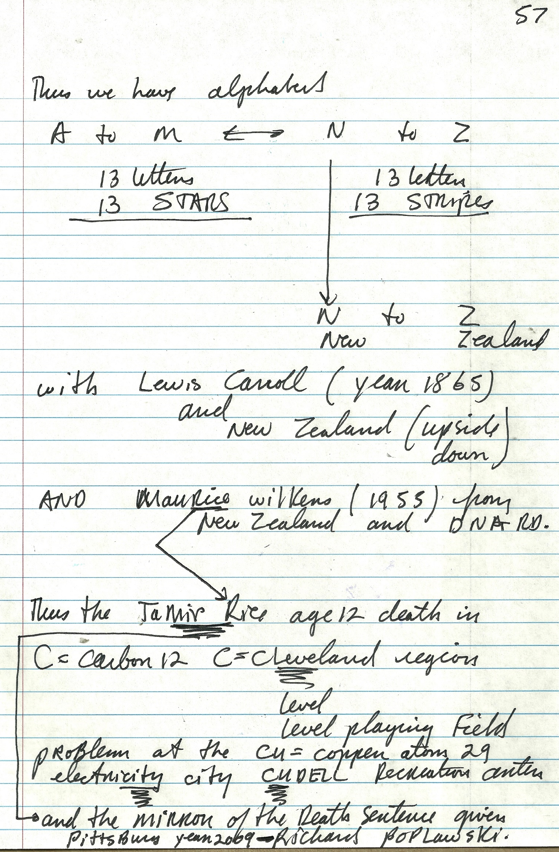 57
Thus we have alphabets
A to M ⟷ N to Z
13 letters 13 letters
13 STARS 13 STRIPES
N to Z
New Zealand
with Lewis Carroll (year 1865)
and
New Zealand (upside
down)
AND Maurice Wilkens (1953) from
New Zealand and DNA RD.
Thus the Tamir Rice age 12 death in
C = Carbon 12 C = Cleveland region
level
level playing Field
problem at the Cu = copper atom 29
electricity city CUDELL Recreation center
and the mirror of the Death Sentence given
Pittsburg year 2009 – Richard POPLAWSKI.